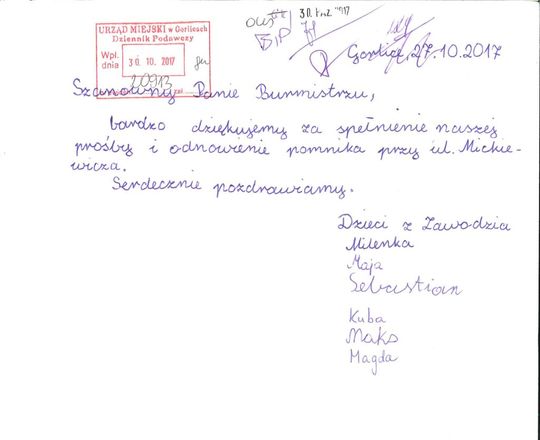 URZĄD MIEJSKI w Gorlicach
Dziennik Podawczy
Wpł.
dnia
30. 10. 2017
20913
Gorlice, 27.10.2017
Szanowny Panie Burmistrzu,
bardzo dziękujemy za spełnienie naszej
prośby i odnowienie pomnika przy ul. Mickie-
wicza.
Serdecznie pozdrawiamy.
Dzieci z Zawodzia
Milenka
Maja
Sebastian
Kuba
Maks
Magda